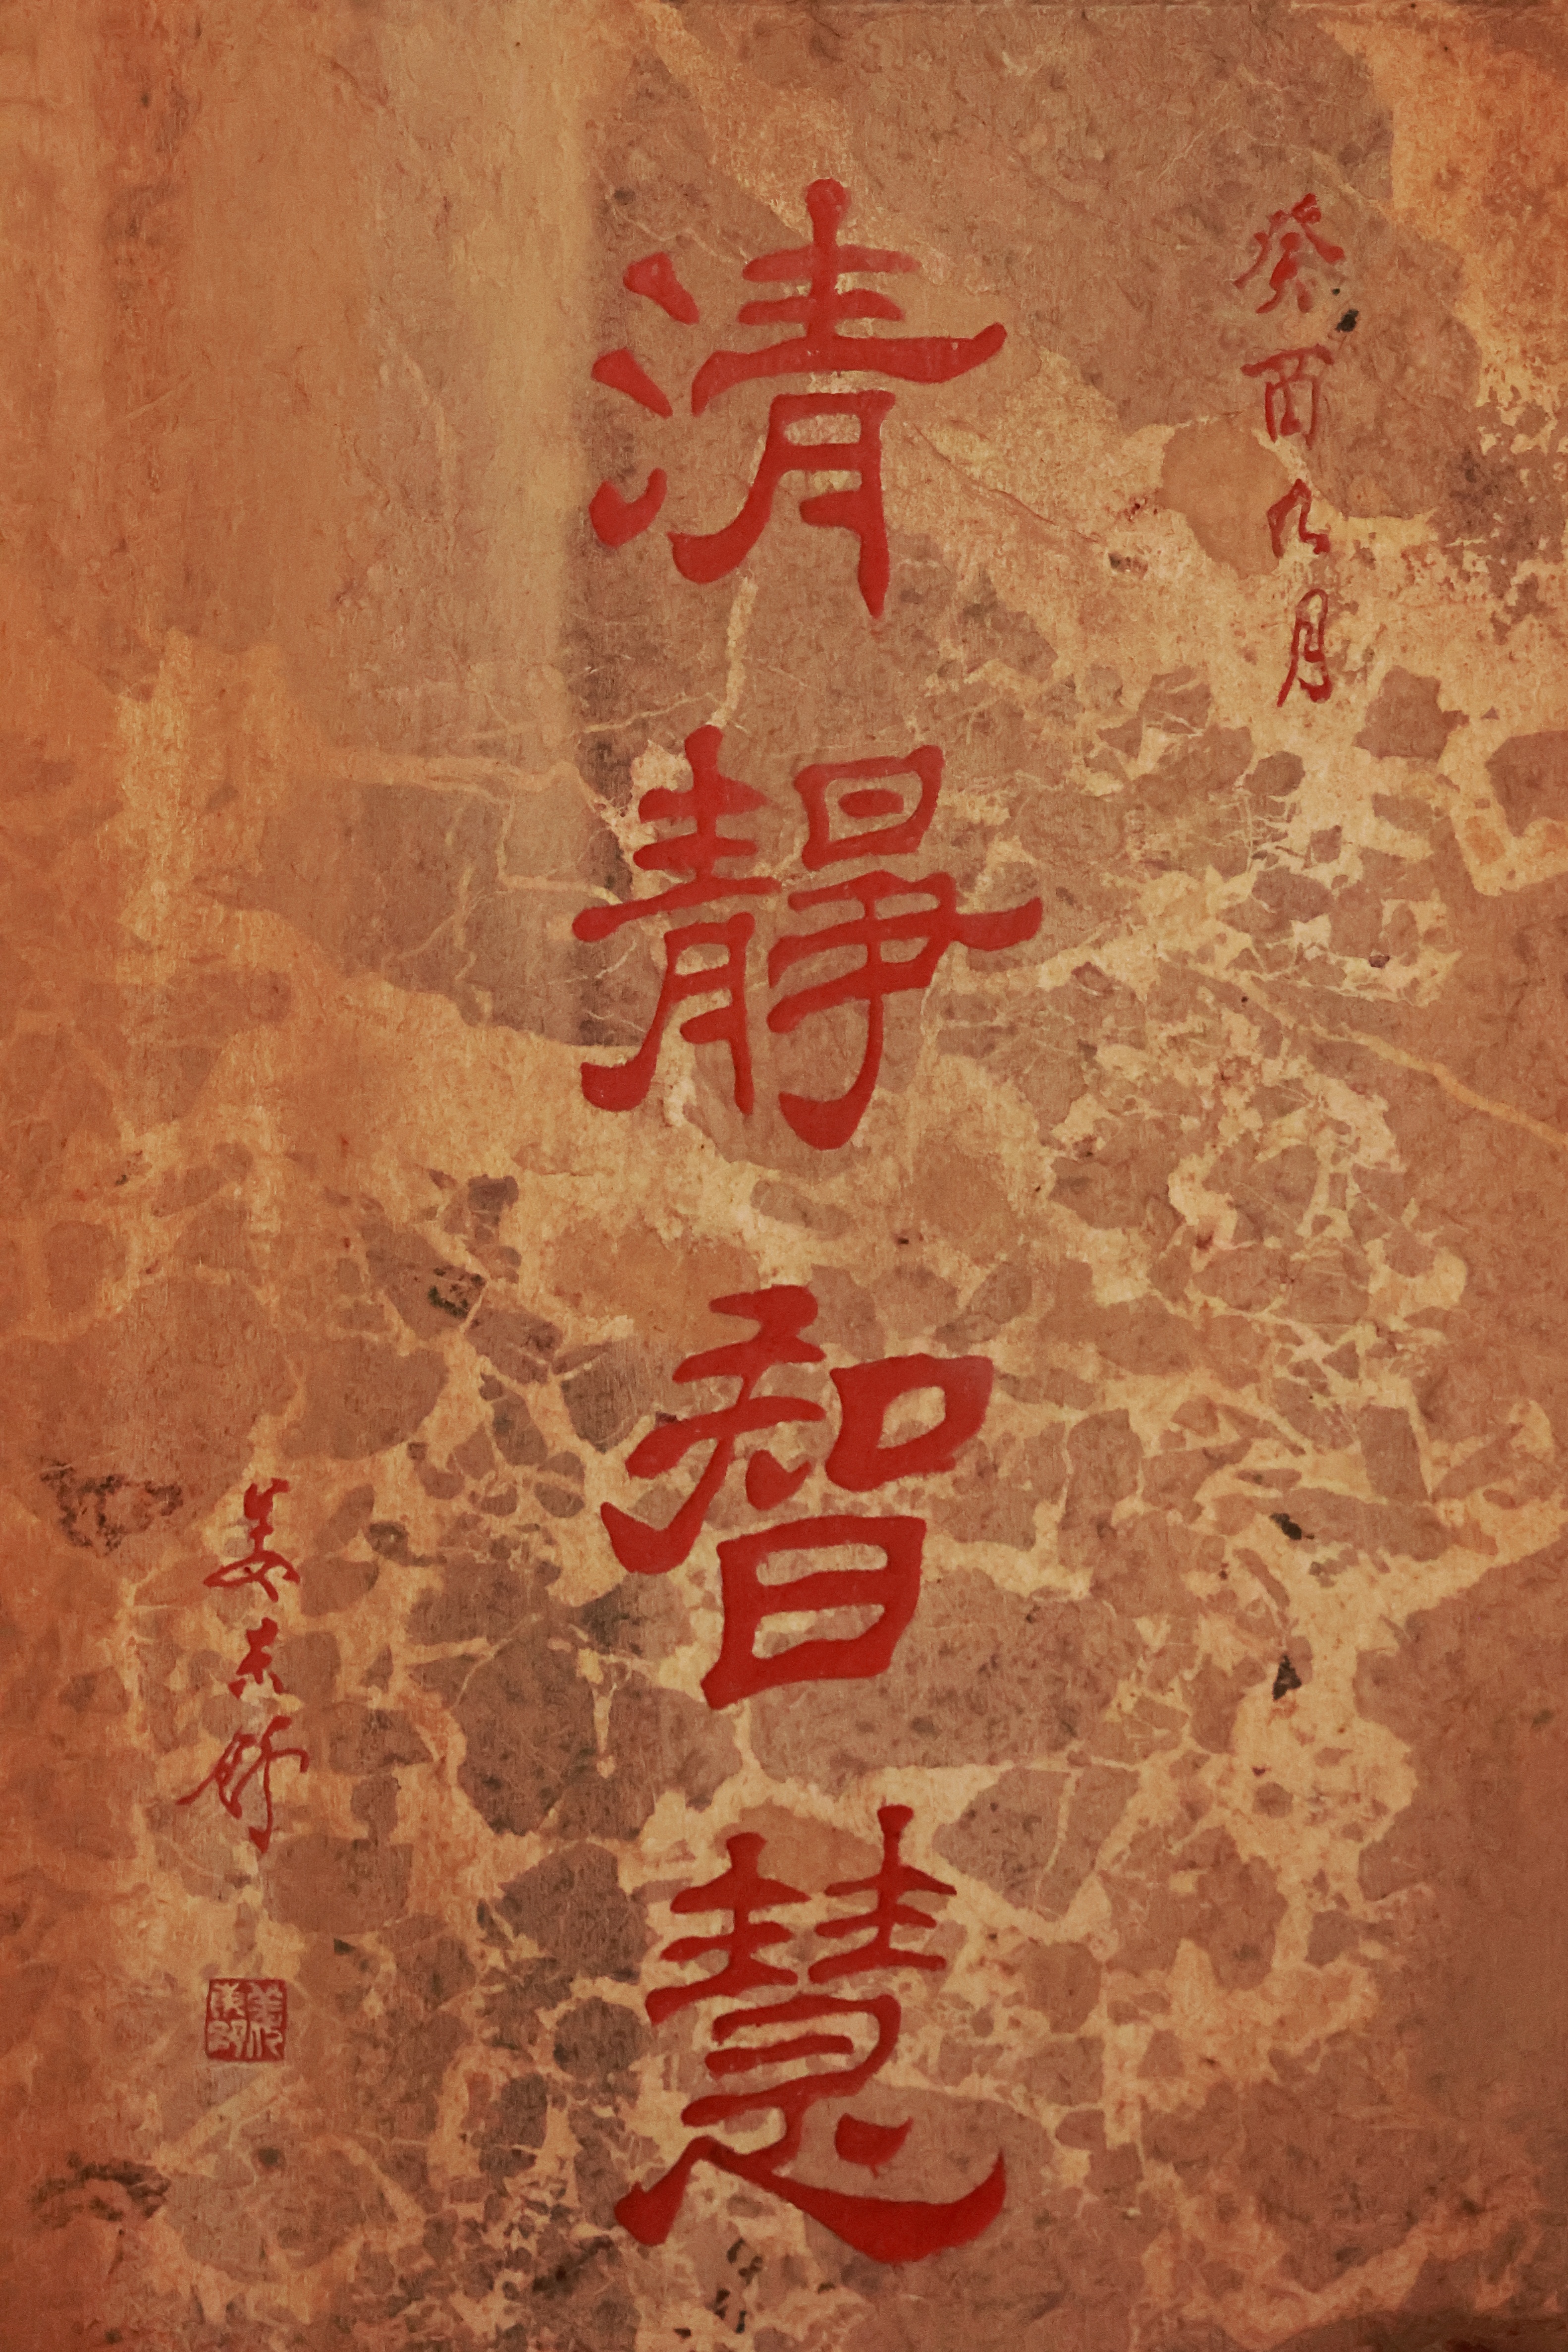 癸酉九月
清靜智慧
姜东舒